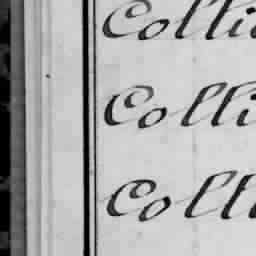 Colli
Colli
Colli